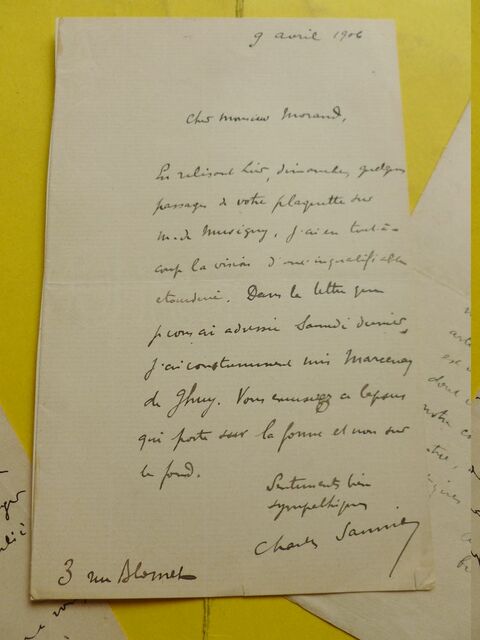 9 avril 1906
Cher monsieur Morand,
En relisant hier, dimanche, quelques
passages de votre plaquette sur
M. de Musigny, j'ai eu tout-à-
coup la vision d'une inqualifiable
étourderie. Dans la lettre que
je vous ai adressée Samedi dernier,
j'ai constamment mis Marcenay
de Ghuy. Vous excuserez ce lapsus
qui porte sur la forme et non sur
le fond.
Sentiments bien
sympathiques
Charles
3 rue Blomet